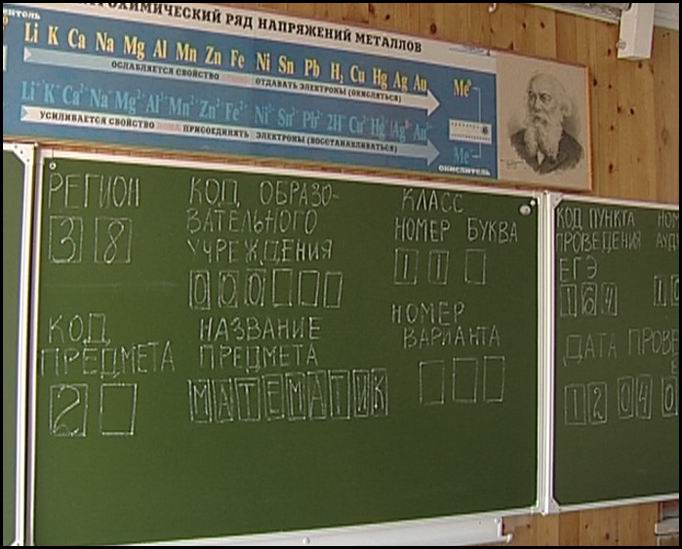 ХИМИЧЕСКИЙ РЯД НАПРЯЖЕНИЙ МЕТАЛЛОВ
Li K Ca Na Mg Al Mn Zn Fe Ni Sn Pb H₂ Cu Hg Ag Au
ОСЛАБЛЯЕТСЯ СВОЙСТВО ОТДАВАТЬ ЭЛЕКТРОНЫ (ОКИСЛЯТЬСЯ)
УСИЛИВАЕТСЯ СВОЙСТВО ПРИСОЕДИНЯТЬ ЭЛЕКТРОНЫ (ВОССТАНАВЛИВАТЬСЯ)
окислитель
РЕГИОН
38
КОД ОБРАЗО-
ВАТЕЛЬНОГО
УЧРЕЖДЕНИЯ
000
КЛАСС
НОМЕР БУКВА
11
КОД
ПРЕДМЕТА
2
НАЗВАНИЕ
ПРЕДМЕТА
МАТЕМАТИК
НОМЕР
ВАРИАНТА
КОД ПУНКТА
ПРОВЕДЕНИЯ
ЕГЭ
164
НОМ
АУД
10
ДАТА ПРОВЕ
Е
12 04 0